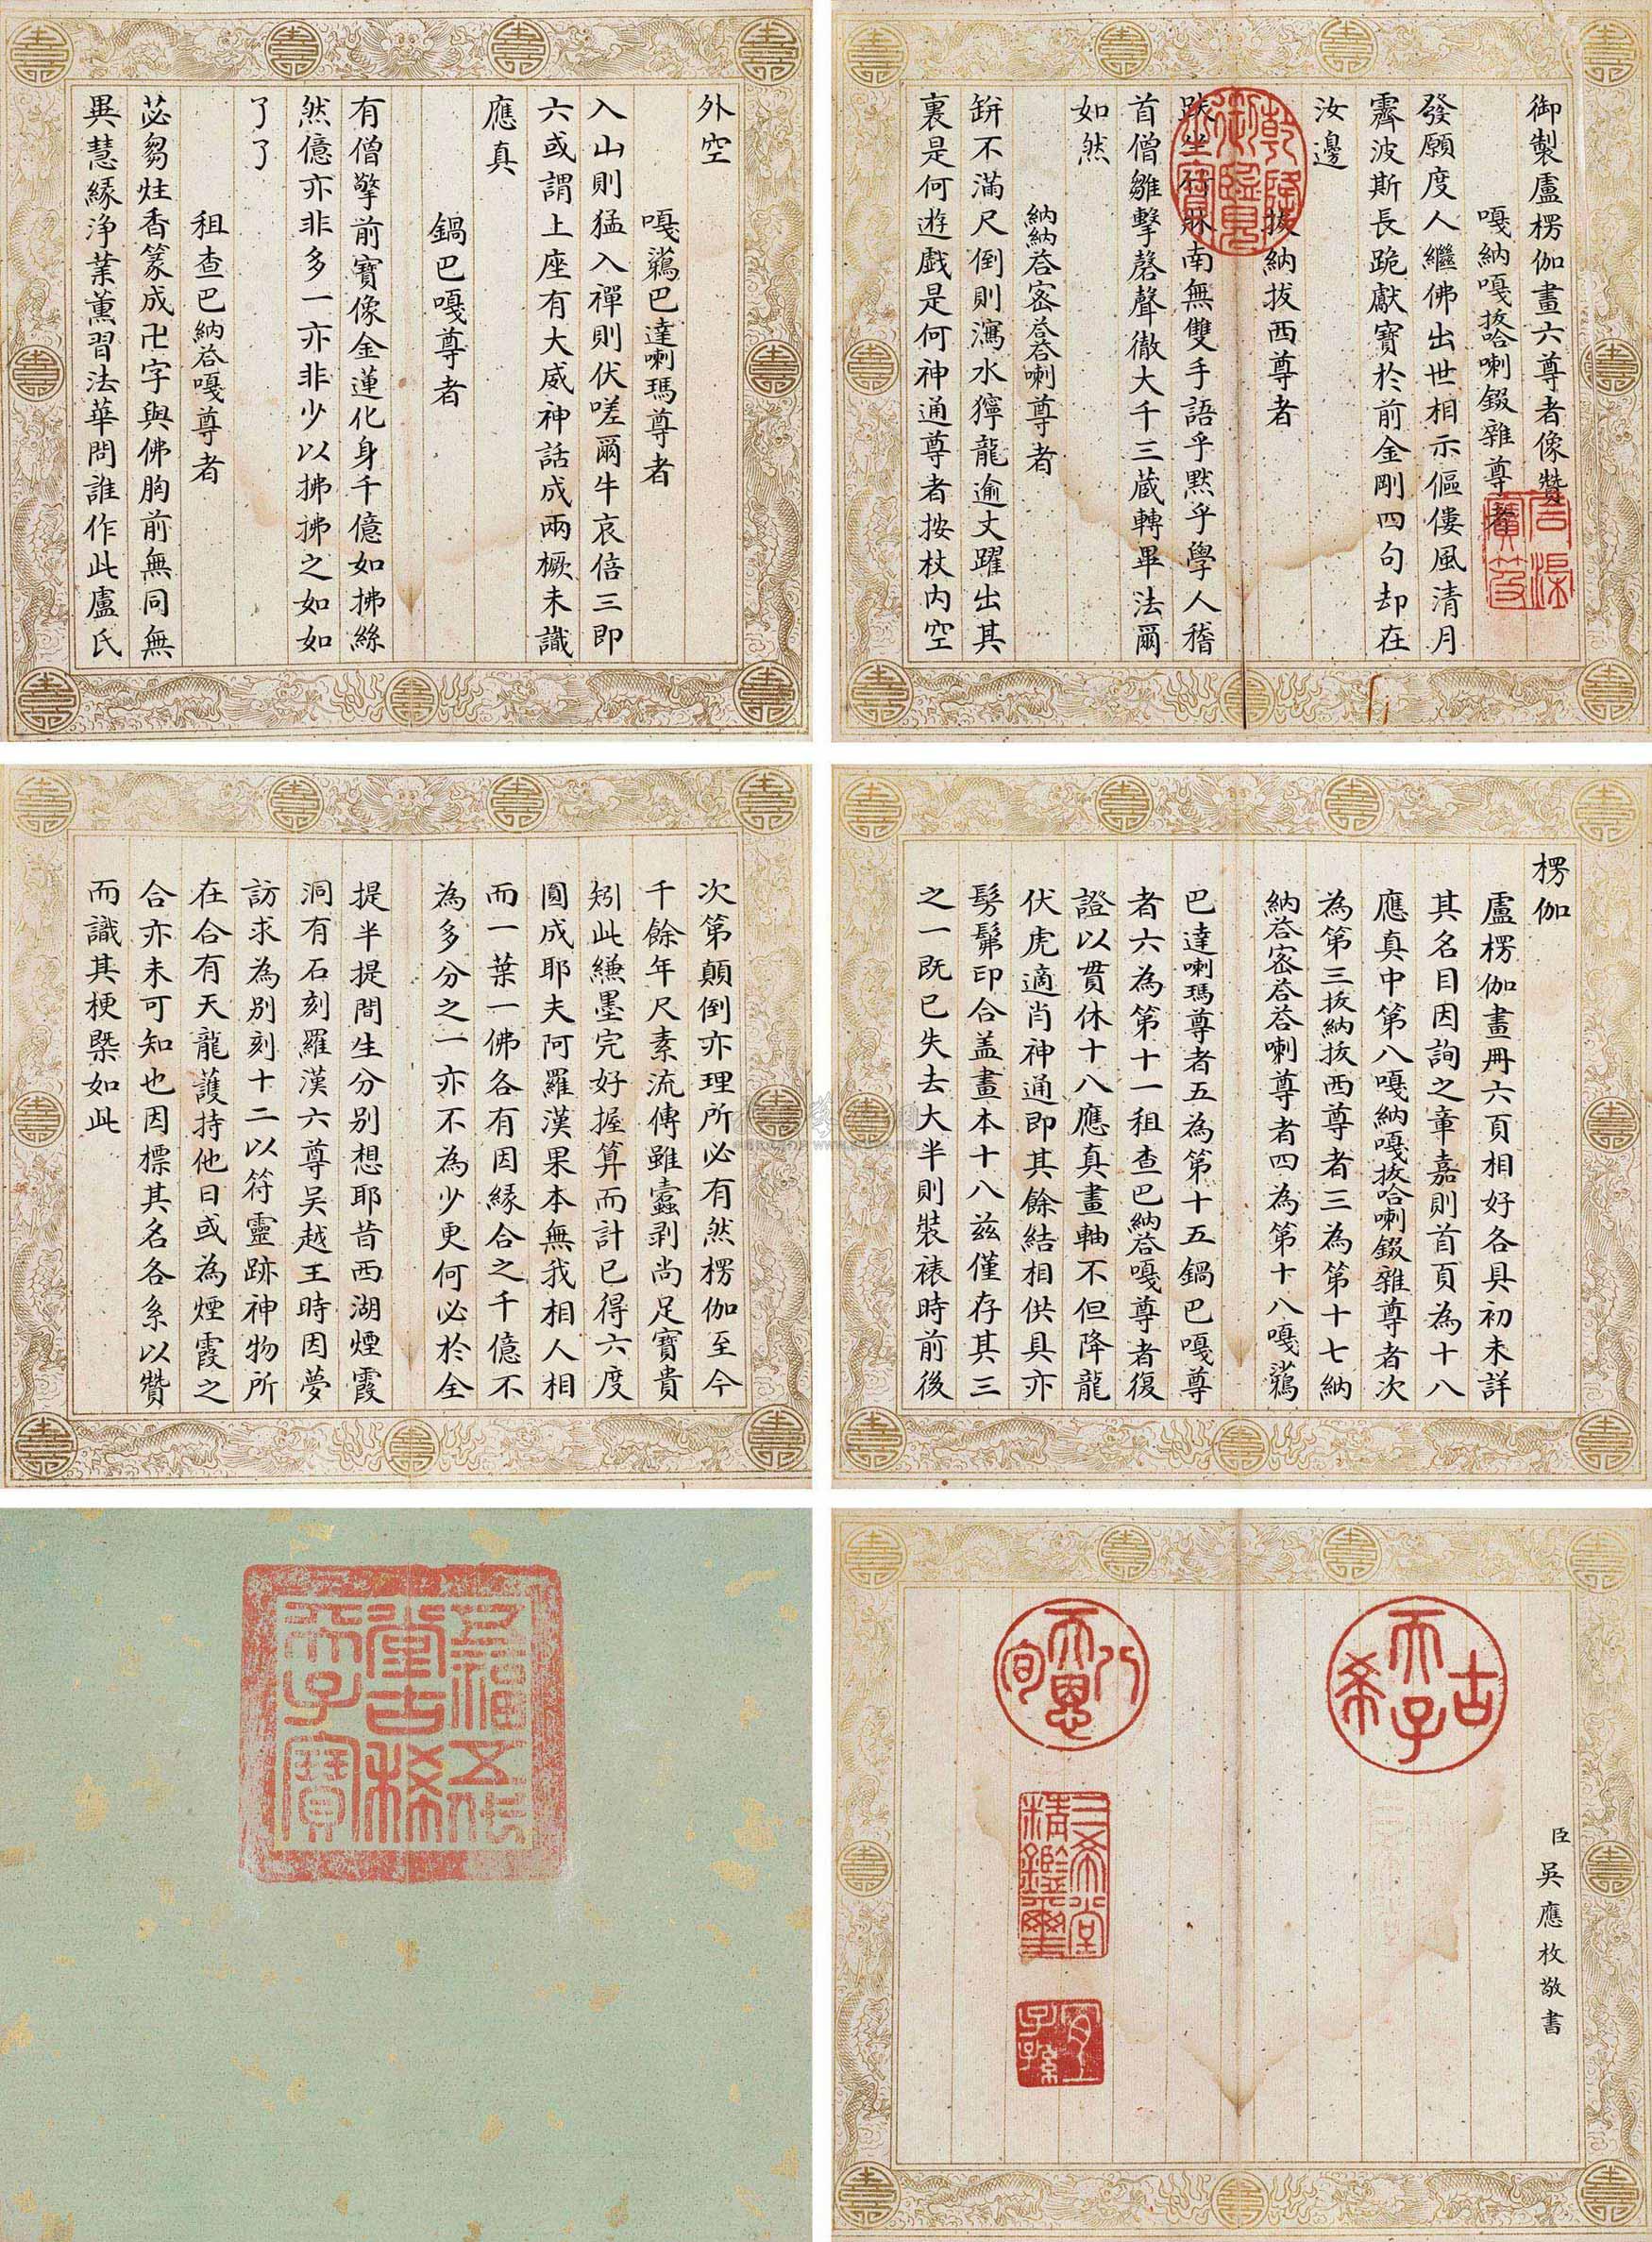 御製盧楞伽畫六尊者像贊
嘎納嘎拔哈喇錣雜尊者
發願度人繼佛出世相示傴僂風清月
霽波斯長跪獻寶於前金剛四句却在
汝邊
拔納拔西尊者
趺坐竹牀南無雙手語乎默乎學人稽
首僧雛擊磬聲徹大千三藏轉畢法爾
如然
納納荅密荅荅喇尊者
缾不滿尺倒則瀉水獰龍逾丈躍出其
裏是何遊戲是何神通尊者按杖内空
外空
嘎鴉巴達喇瑪尊者
入山則猛入禪則伏嗟爾牛哀倍三即
六或謂上座有大威神話成兩橛未識
應真
鍋巴嘎尊者
有僧擎前寶像金蓮化身千億如拂絲
然億亦非多一亦非少以拂拂之如如
了了
租查巴納荅嘎尊者
苾芻炷香篆成卍字與佛胸前無同無
異慧緣浄業薰習法華問誰作此盧氏
楞伽
盧楞伽畫冊六頁相好各具初未詳
其名目因詢之章嘉則首頁為十八
應真中第八嘎納嘎拔哈喇錣雜尊者次
為第三拔納拔西尊者三為第十七納
納荅密荅荅喇尊者四為第十八嘎鴉
巴達喇瑪尊者五為第十五鍋巴嘎尊
者六為第十一租查巴納荅嘎尊者復
證以貫休十八應真畫軸不但降龍
伏虎適肖神通即其餘結相供具亦
髣髴印合盖畫本十八兹僅存其三
之一既已失去大半則裝裱時前後
次第顛倒亦理所必有然楞伽至今
千餘年尺素流傳雖蠹剥尚足寶貴
矧此縑墨完好握算而計已得六度
圓成耶夫阿羅漢果本無我相人相
而一葉一佛各有因緣合之千億不
為多分之一亦不為少更何必於全
提半提間生分别想耶昔西湖煙霞
洞有石刻羅漢六尊吴越王時因夢
訪求為别刻十二以符靈跡神物所
在合有天龍護持他日或為煙霞之
合亦未可知也因標其名各系以贊
而識其梗槩如此
臣吴應枚敬書
乾隆御覽之寶
石渠寶笈
古希天子
八徵耄念
三希堂精鑑璽
宜子孫
五福五代堂古稀天子寶